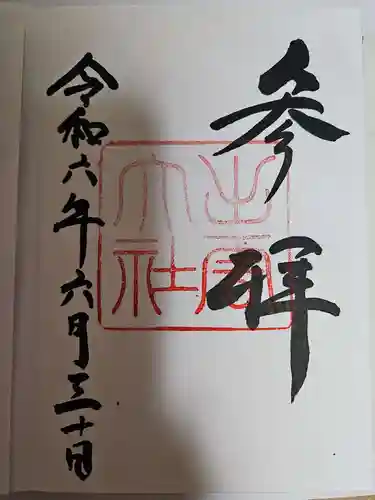 参拝
出雲
大社
令和六年六月三十日